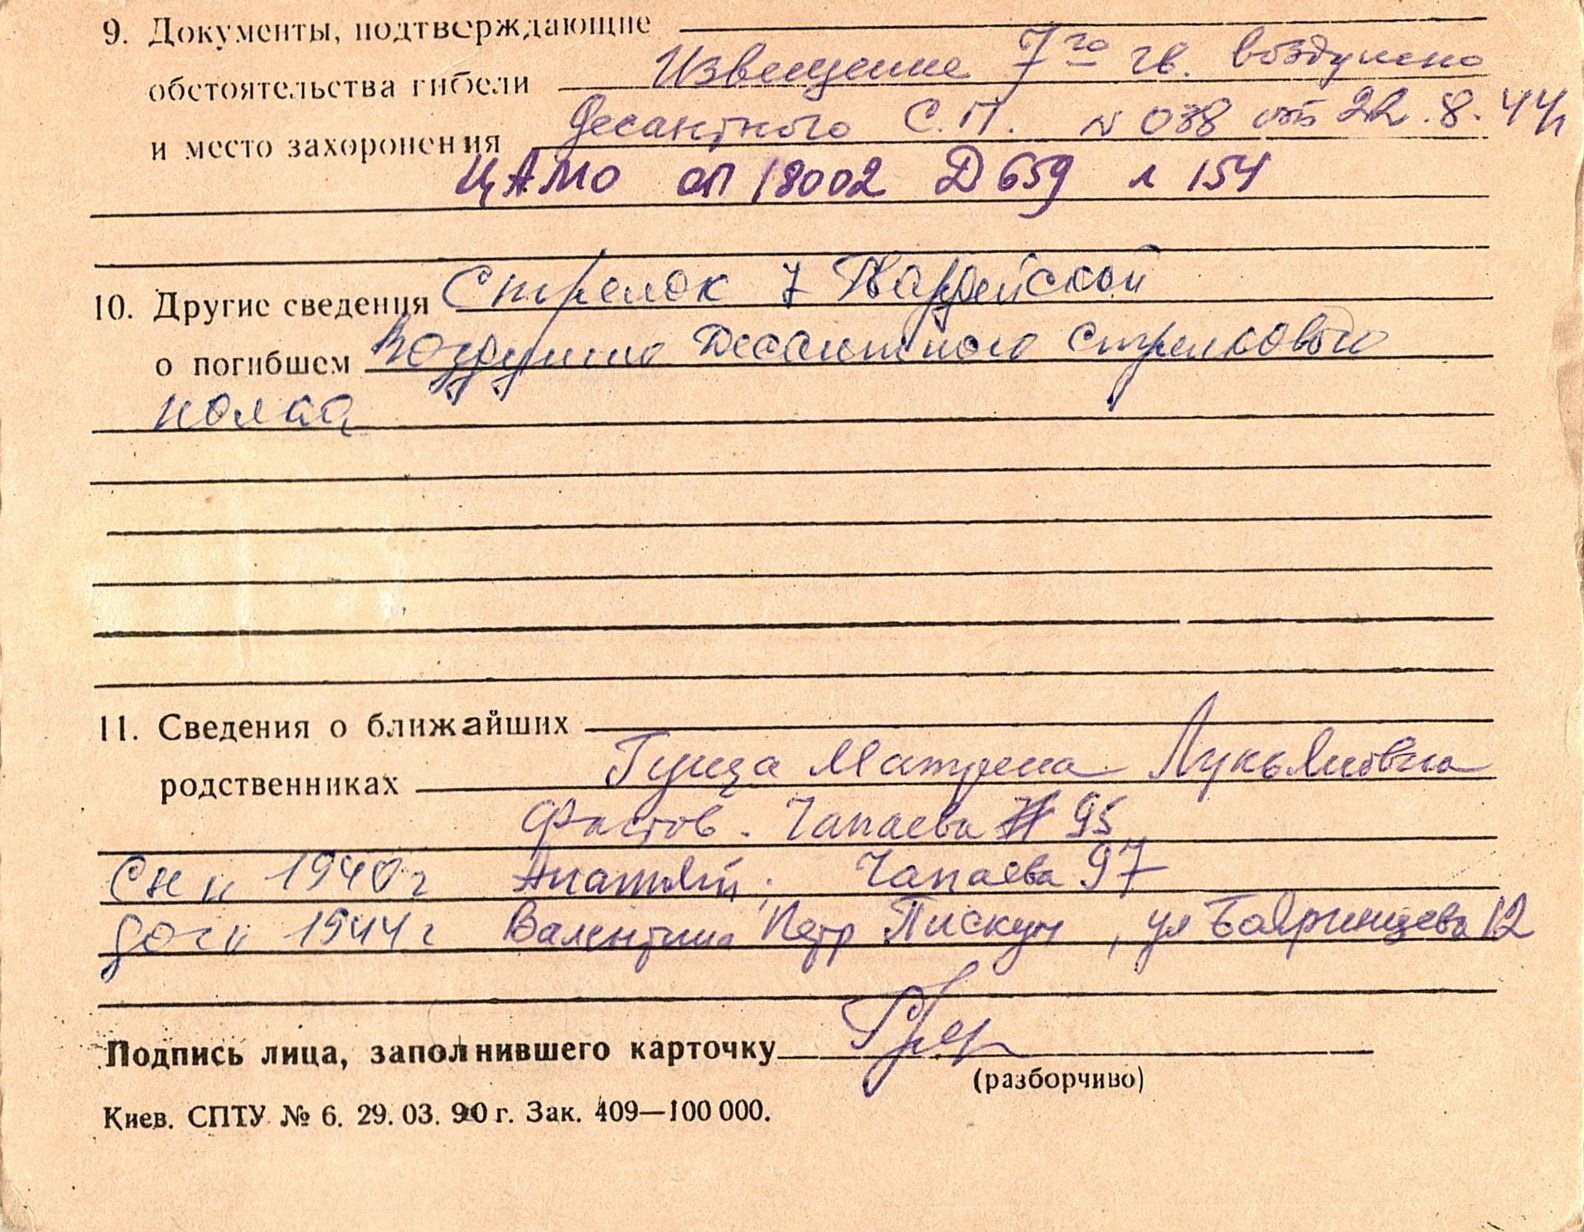 9. Документы, подтверждающие
обстоятельства гибели Извещение 7го гв. воздушно
и место захоронения десантного С.П. № 038 от 22.8.44г
ЦАМО оп 18002 Д 659 л 154
10. Другие сведения Стрелок 7 Гвардейской
о погибшем Воздушно Десантного Стрелкового
полка
11. Сведения о ближайших
родственниках Гуща Матрена Лукьяновна
Фастов. Чапаева 95
сын 1940г Анатолий; Чапаева 97
дочь 1944г Валентина Петр Пискун, ул Бояринцева 12
Подпись лица, заполнившего карточку
(разборчиво)
Киев. СПТУ № 6. 29. 03. 90 г. Зак. 409—100 000.